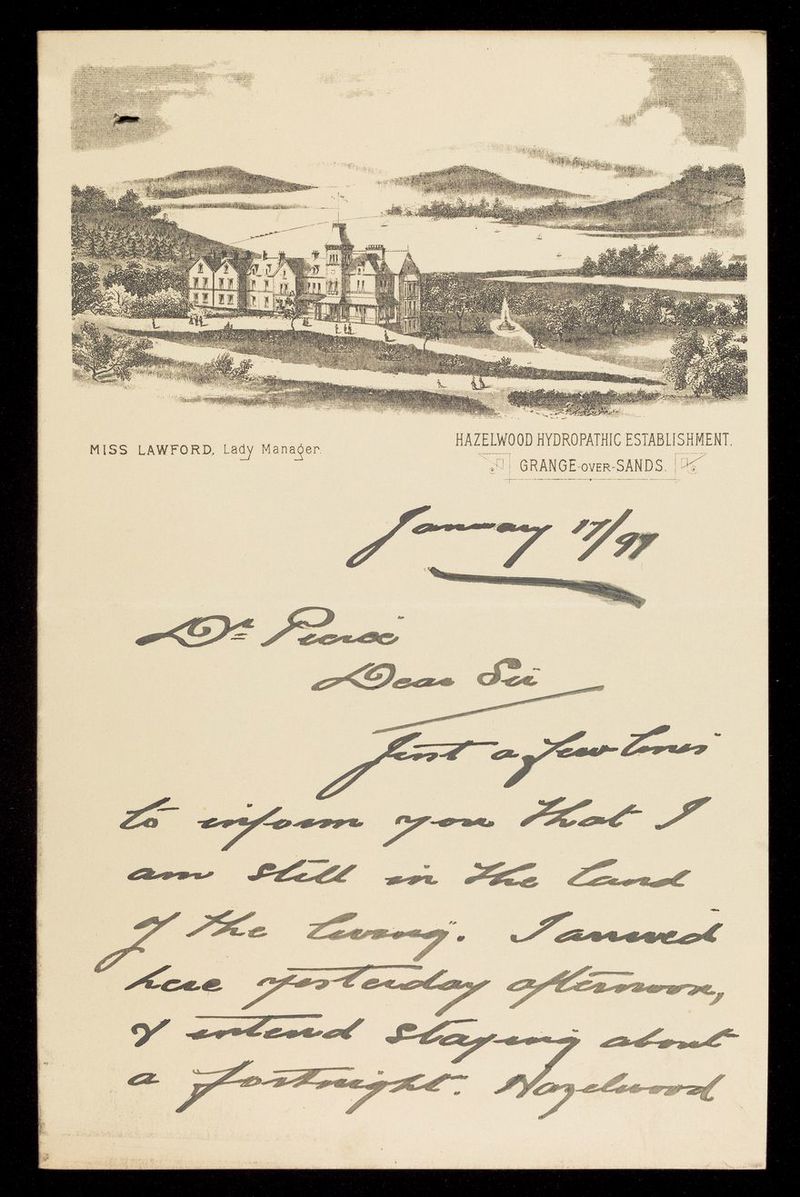 MISS LAWFORD, Lady Manager.
HAZELWOOD HYDROPATHIC ESTABLISHMENT.
GRANGE-OVER-SANDS.
January 17/97
Dr Pierce
Dear Sir
Just a few lines
to inform you that I
am still in the land
of the living. I arrived
here yesterday afternoon,
& intend staying about
a fortnight. Hazelwood